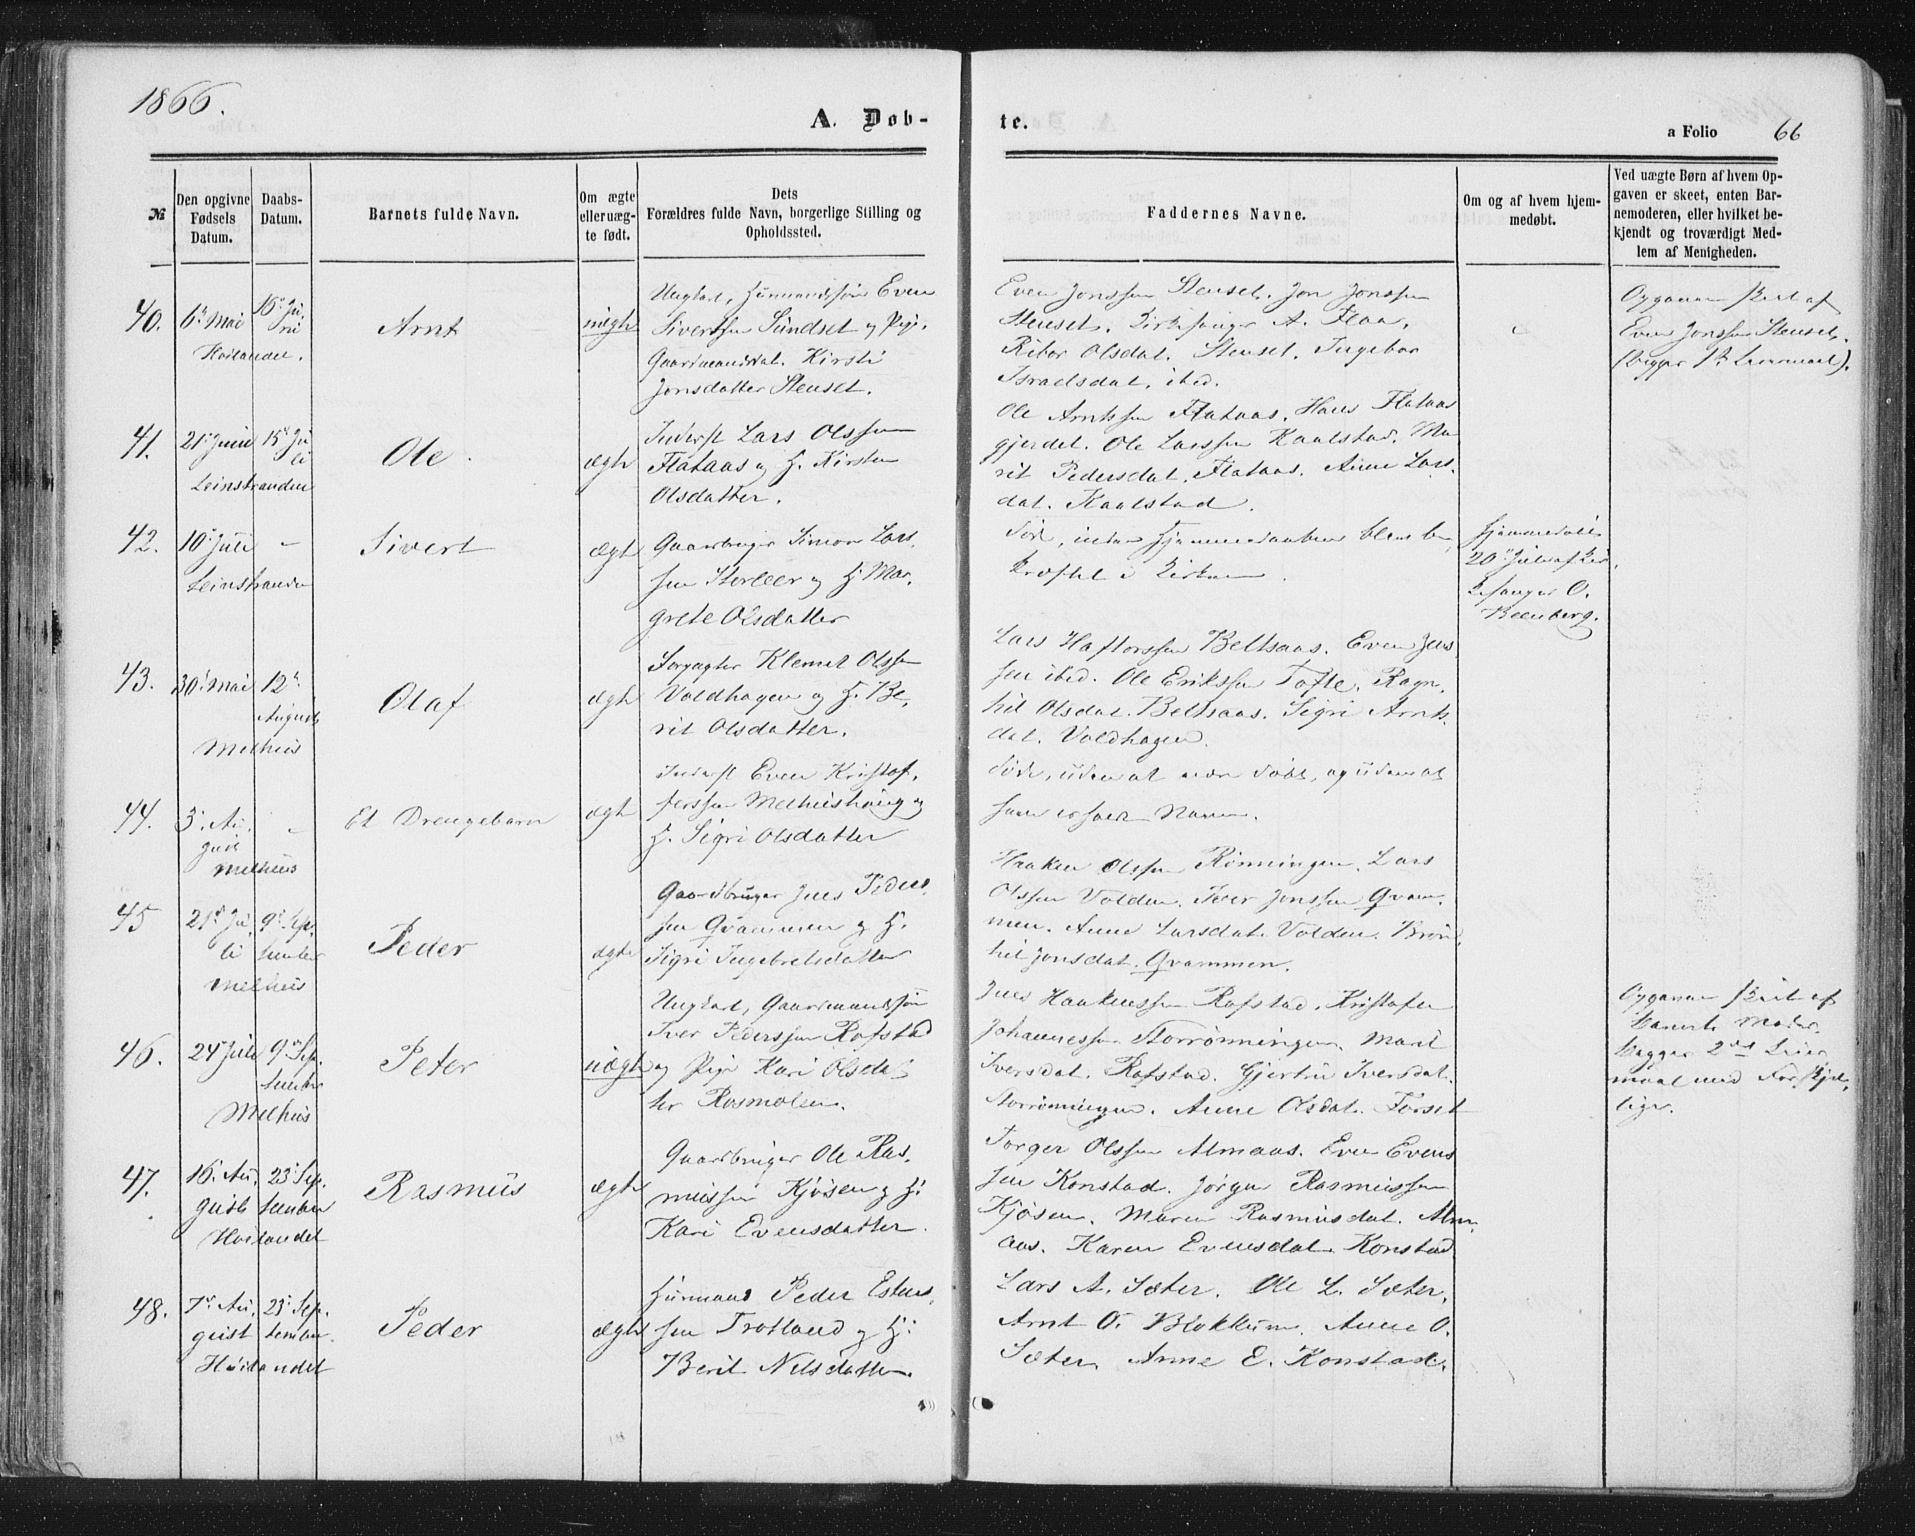 1866.
A. Døb-
te.
a Folio 66
№
Den opgivne
Fødsels
Datum.
Daabs-
Datum.
Barnets fulde Navn.
Om ægte
eller uæg-
te født.
Dets
Forældres fulde Navn, borgerlige Stilling og
Opholdssted.
Faddernes Navne.
Om og af hvem hjem-
medøbt.
Ved uægte Børn af hvem Op-
gaven er skeet, enten Bar-
nemoderen, eller hvilket be-
kjendt og troværdigt Med-
lem af Menigheden.
40.
6' Mai
Hølandet.
Ju-
ni
Arnt
uægte
Ungkarl, Huusmandssøn Even
Sivertsen Sundset og Pige,
Gaardmandsdat. Kirsti
Jonsdatter Stenset.
Even Jonssen Stenset. Jon Jonssen
Stenset. Kirkesanger A. Flaa.
Olsdat. Stenset. Ingebor
Israelsdat. ibid.
Opgaven skeet af
Even Jonssen Stenset.
(begges 1st Leiermaal).
41.
21' Juni
Leinstranden
15' Ju
li
Ole
ægte
Inderst Lars Olssen
Flataas og H. Kirsten
Olsdatter.
Ole Arntssen Flataas. Hans Flataas
gjerdet. Ole Larssen Kaalstad. Ma-
rit Pedersdat. Flataas. Anne Lars-
dat. Kaalstad.
42.
10' Juli
Leinstranden
"
Sivert
ægte
Gaardbruger Simon Lars-
sen Storleer og H. Mar-
grete Olsdatter
Død, inden Hjemmedaaben blev be-
kræftet i Kirken.
Hjemmedøbt
20' Juli af Kir-
kesanger O.
Beenberg.
43.
30' Mai
Melhus
12'
August
Olaf
ægte
Forpagter Klemet Olssen
Voldhagen og H. Be-
rit Olsdatter.
Lars Haftorssen Beltsaas. Even Jens
sen ibid. Ole Erikssen Tofte. Ragn-
hil Olsdat. Beltsaas. Sigri Arnts-
dat. Voldhagen.
44.
3' Au-
gust
Melhus
"
Et Drengebarn
ægte
Inderst Even Kristof-
ferssen Melhushaug og
H. Sigri Olsdatter
Død, uden at være døbt, og uden at
have erholdt Navn.
45
21' Ju-
li
Melhus
9' Sep-
tember
Peder
ægte
Gaardbruger Jens Peders-
sen Qvammen og H.
Sigri Ingebretsdatter
Haaken Olssen Rønningen. Lars
Olssen Volden. Iver Jonssen Qvam-
men. Anne Larsdat. Volden. Brøn-
hil Jonsdat. Qvammen.
46.
24' Juli
Melhus
9' Sep-
tember
Peter
uægte
Ungkarl, Gaardmandssøn
Iver Pederssen Rofstad
og Pige Kari Olsdat-
ter Rosmolen.
Jens Haakenssen Rofstad. Kristofer
Johannessen Storrønningen. Marit
Iversdat. Rofstad. Gjertru Iversdat.
Storrønningen. Anne Olsdat. Forset
Opgaven skeet af
Barnets Moder.
Begges 2det Leier
maal med Forskjel-
lige.
47.
16' Au-
gust
Hølandet
23' Sep-
tember
Rasmus
ægte
Gaardbruger Ole Ras-
mussen Kjøsen og H.
Kari Evensdatter.
Torger Olssen Almaas. Even Evens
sen Konstad. Jørgen Rasmussen
Kjøsen. Maren Rasmusdat. Alm-
aas. Karen Evensdat. Konstad
48.
7' Au-
gust
Hølandet
23' Sep-
tember.
Peder
ægte
Huusmand Peder Estens-
sen Trotland og H.
Berit Nilsdatter.
Lars A. Sæter. Ole L. Sæter.
Arnt O. Blokkum. Anne O.
Sæter. Anne E. Konstad.